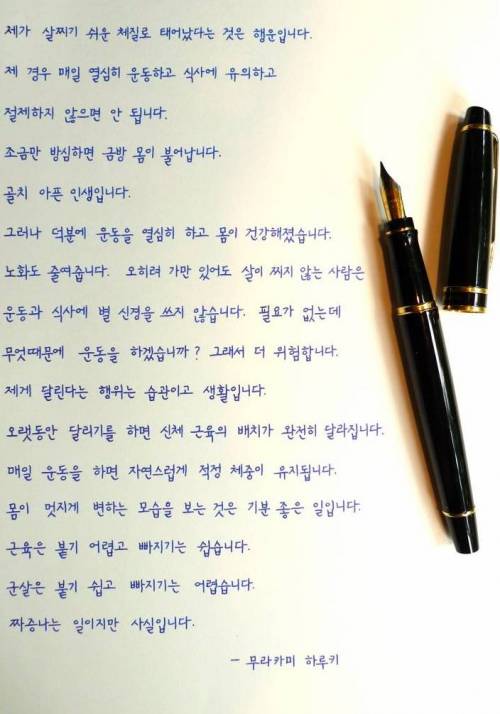 제가 살찌기 쉬운 체질로 태어났다는 것은 행운입니다.
제 경우 매일 열심히 운동하고 식사에 유의하고
절제하지 않으면 안 됩니다.
조금만 방심하면 금방 몸이 불어납니다.
골치 아픈 인생입니다.
그러나 덕분에 운동을 열심히 하고 몸이 건강해졌습니다.
노화도 줄여줍니다. 오히려 가만 있어도 살이 찌지 않는 사람은
운동과 식사에 별 신경을 쓰지 않습니다. 필요가 없는데
무엇때문에 운동을 하겠습니까? 그래서 더 위험합니다.
제게 달린다는 행위는 습관이고 생활입니다.
오랫동안 달리기를 하면 신체 근육의 배치가 완전히 달라집니다.
매일 운동을 하면 자연스럽게 적정 체중이 유지됩니다.
몸이 멋지게 변하는 모습을 보는 것은 기분 좋은 일입니다.
근육은 붙기 어렵고 빠지기는 쉽습니다.
군살은 붙기 쉽고 빠지기는 어렵습니다.
짜증나는 일이지만 사실입니다.
- 무라카미 하루키